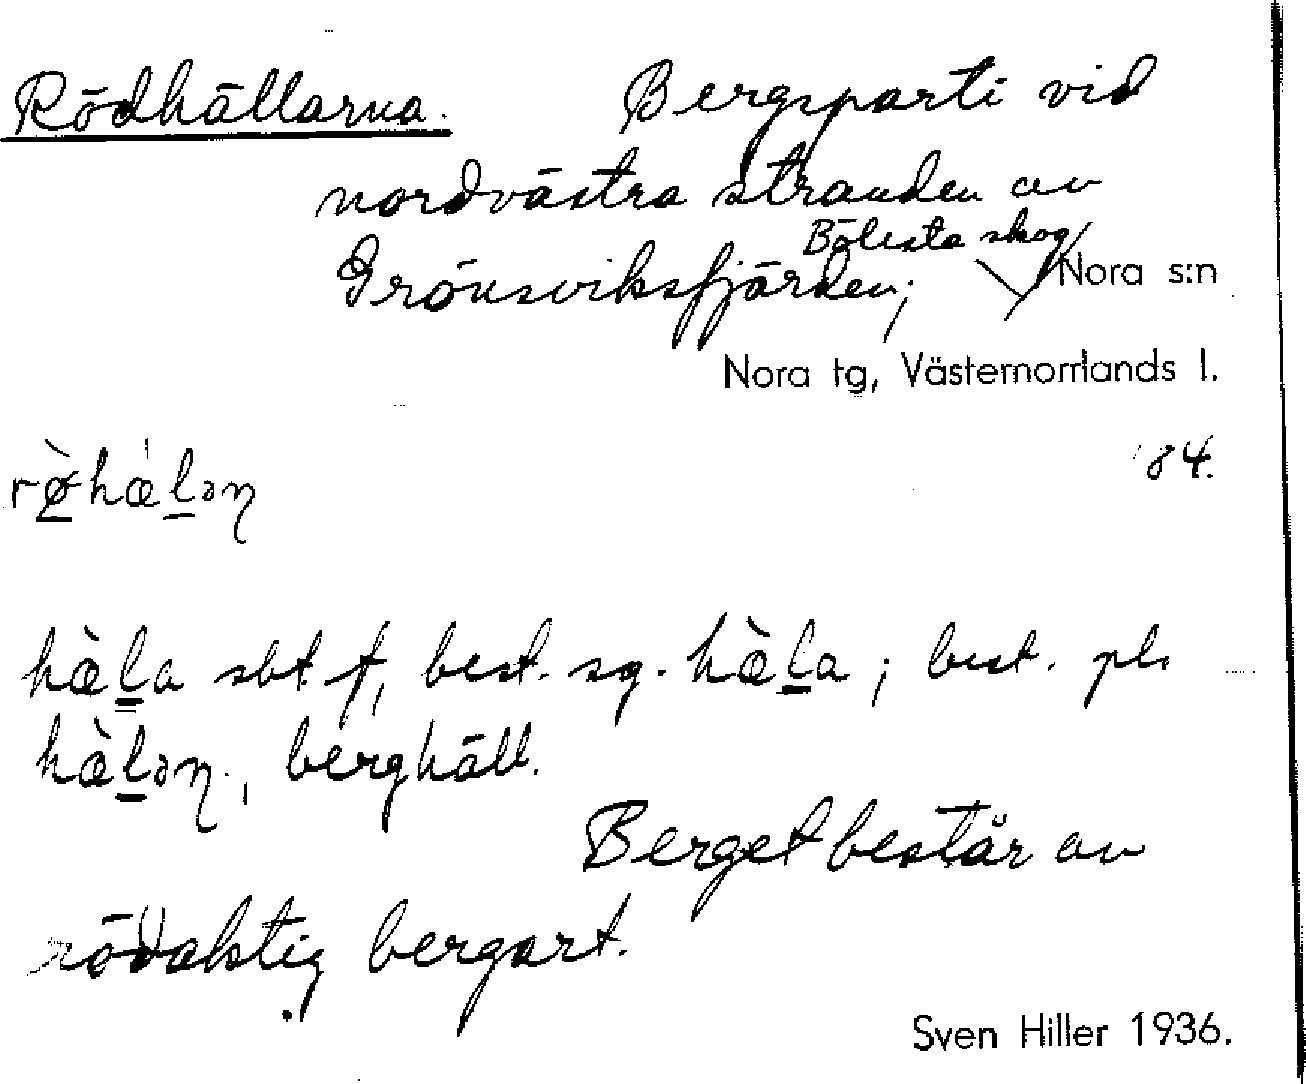 Rödhällarna. Bergsparti vid
nordvästra stranden av
Bölesta skog
Grönsviksfjärden; Nora s:n
Nora tg, Västernorrlands l.
84.
rø̀hæ̍lən
hæ̀la sbt f, best. sg. hæ̀la; best. pl.
hæ̀lən, berghäll.
Berget består av
rödaktig bergart.
Sven Hiller 1936.